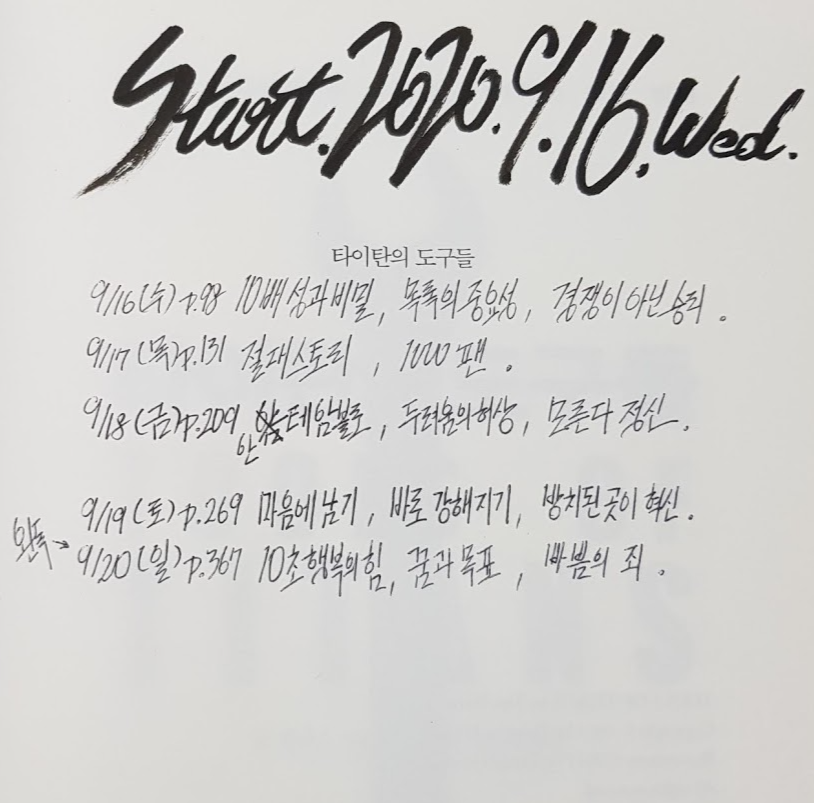 Start. 2020. 9. 16. Wed.
타이탄의 도구들
9/16(수) p.98 10배 성과 비밀, 목록의 중요성, 경쟁이 아닌 승리.
9/17(목) p.131 절대 스토리, 1000팬.
9/18(금) p.209 안테암불로, 두려움의 허상, 모른다 정신.
9/19(토) p.269 마음에 남기, 바로 강해지기, 방치된 곳이 혁신.
완독→ 9/20(일) p.367 10초 행복의 힘, 꿈과 목표, 바쁨의 죄.